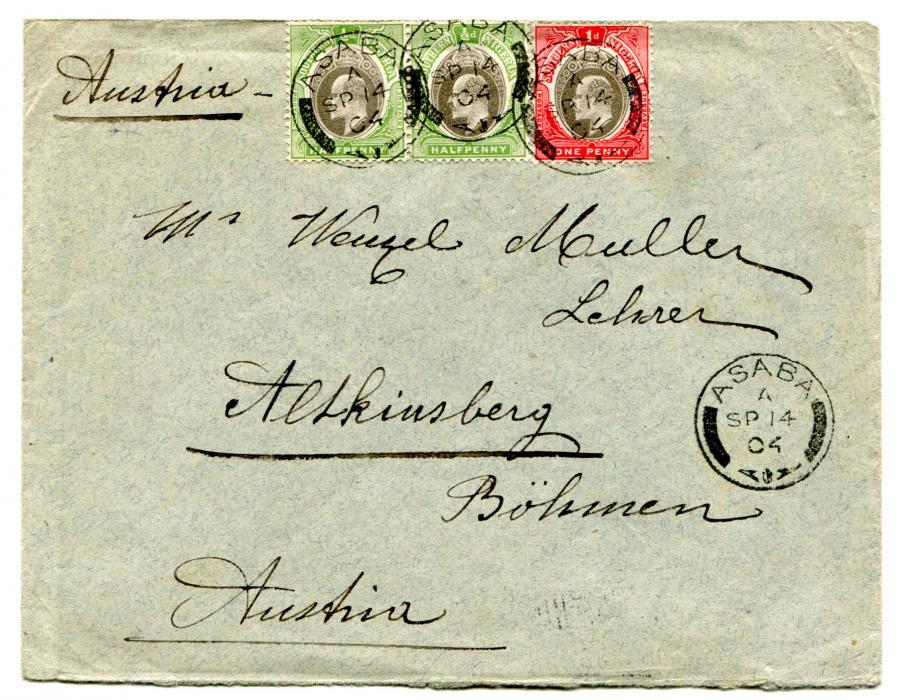 ½d ½d 1d
SOUTHERN NIGERIA SOUTHERN NIGERIA SOUTHERN NIGERIA
HALFPENNY HALFPENNY ONE PENNY
ASABA A SP 14 04
ASABA A SP 14 04
ASABA A SP 14 04
Austria -
Mr Wenzel Muller
Lehrer
Altkinsberg
ASABA
A
SP 14
04
Böhmen
Austria